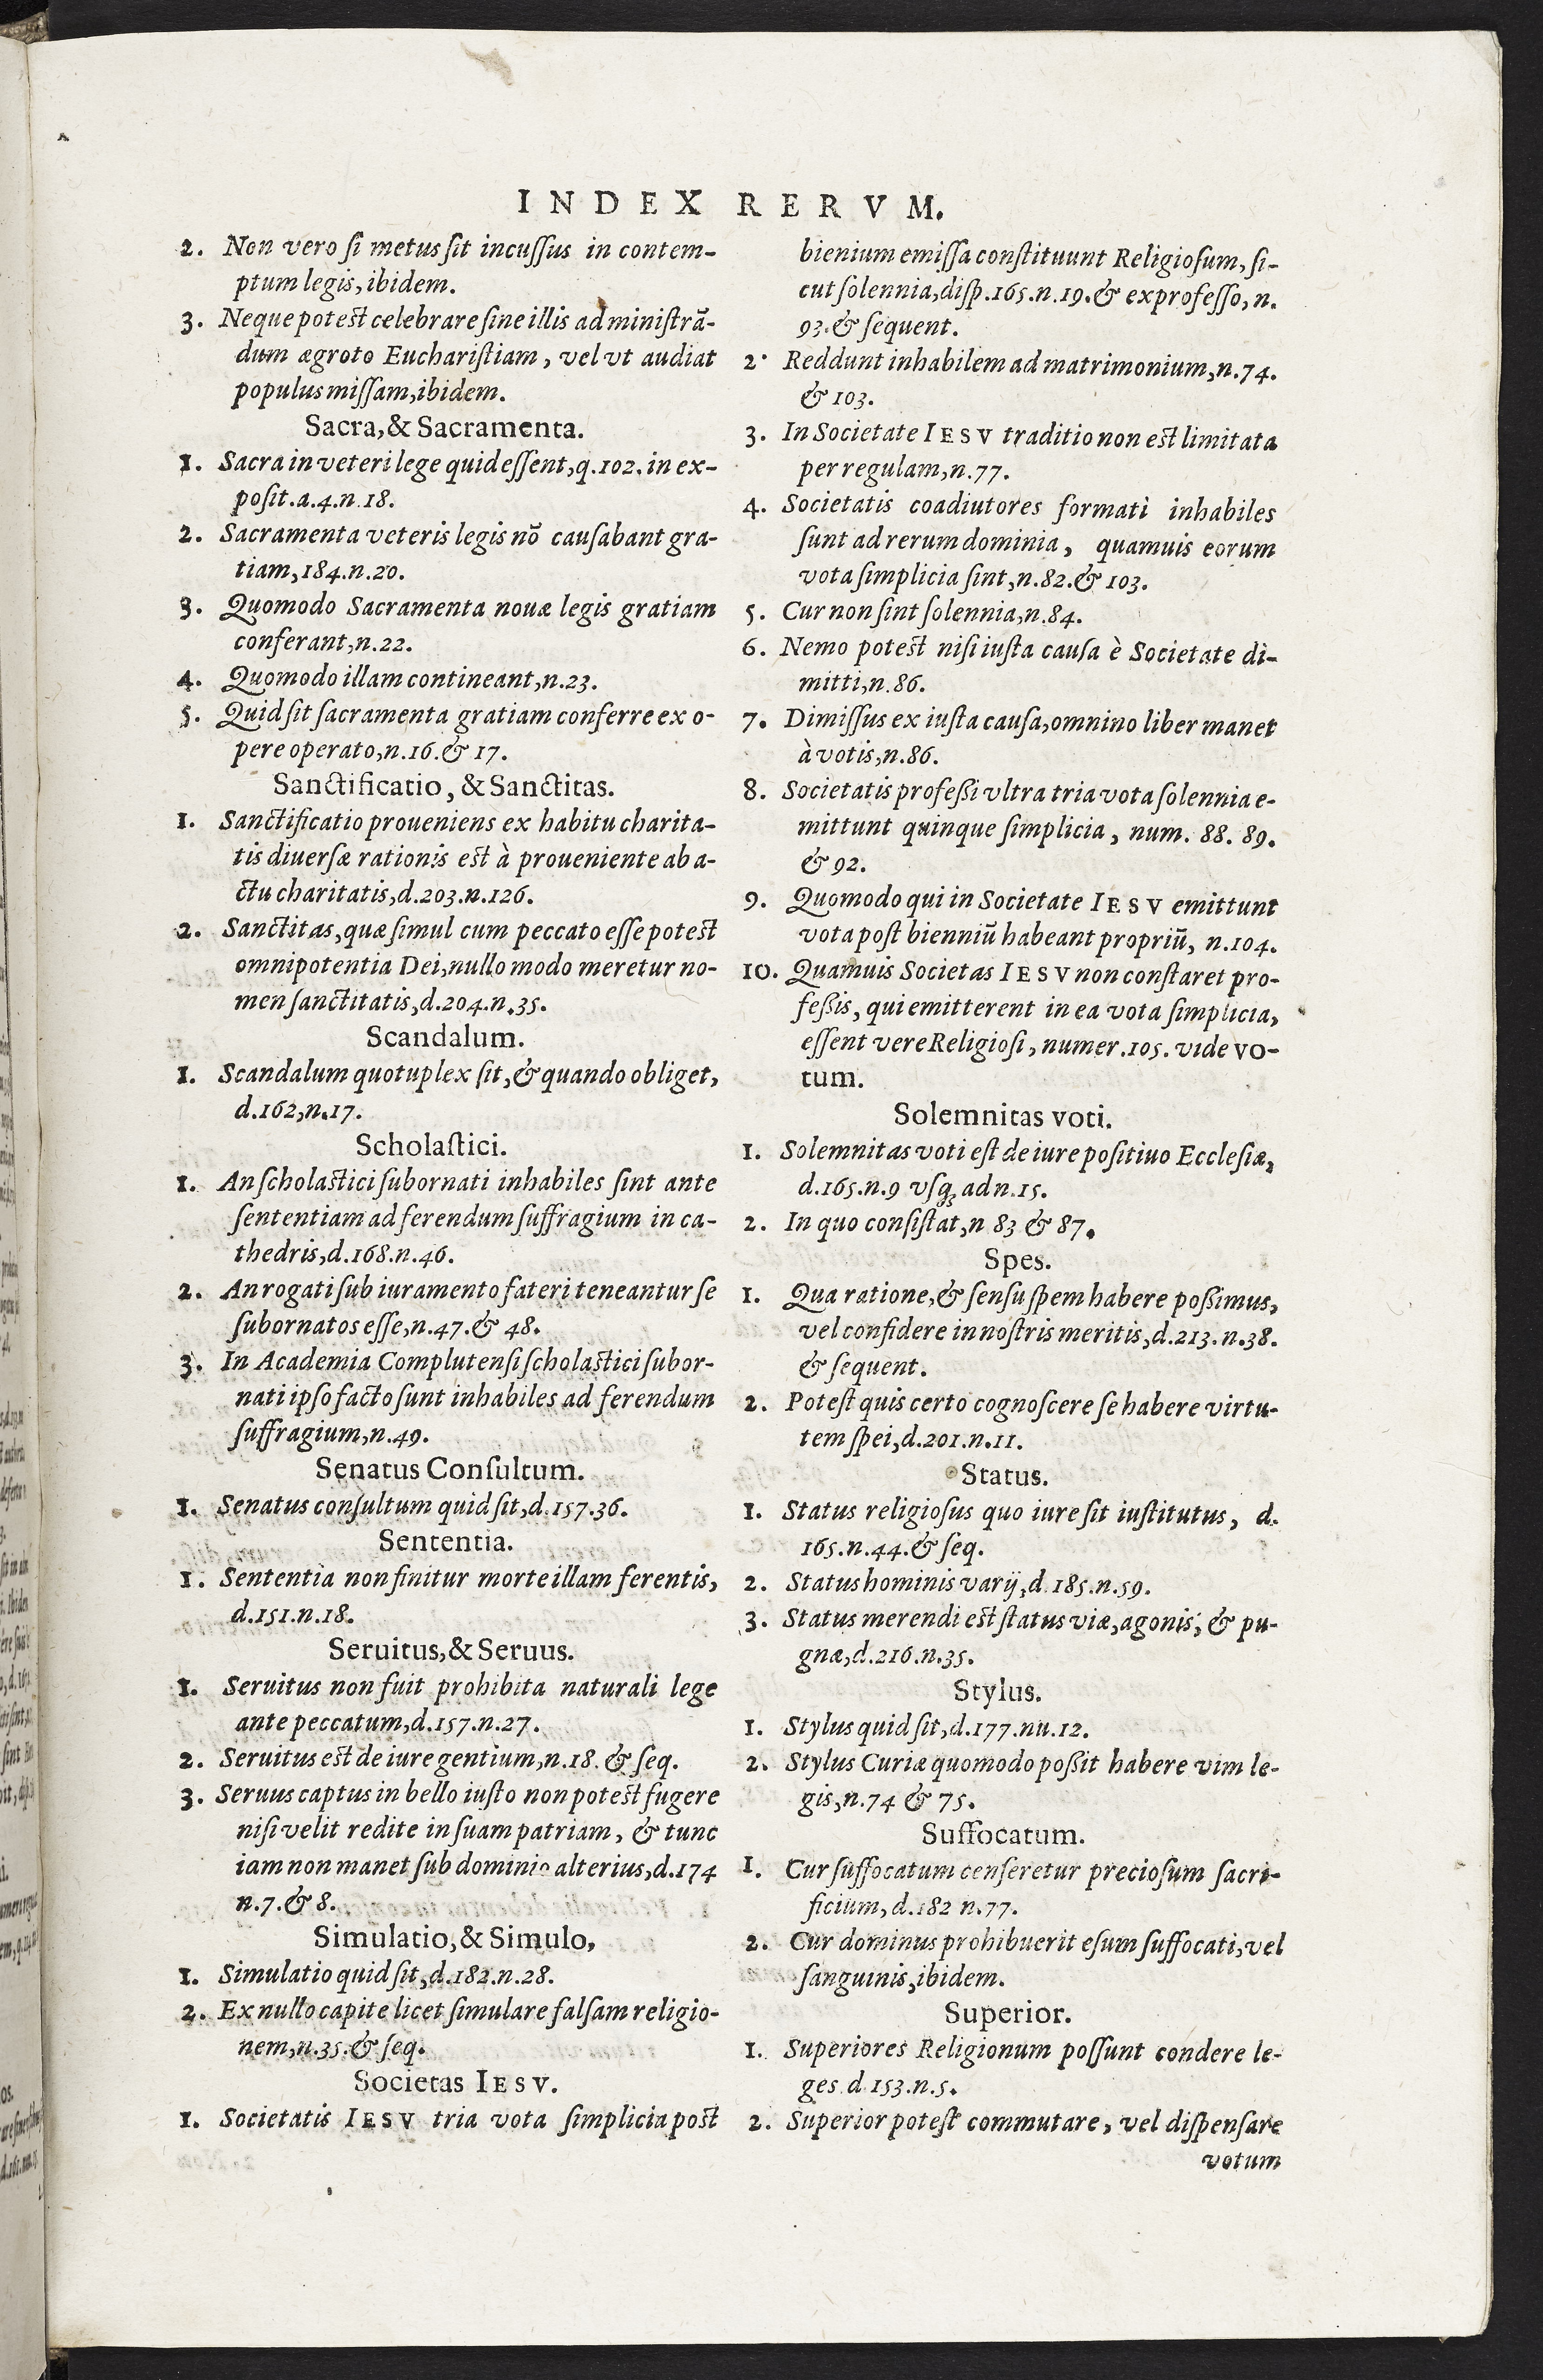 INDEX RERVM.
2. Non vero ſi metus ſit incuſſus in contem-
ptum legis, ibidem.
3. Neque poteſt celebrare ſine illis ad miniſtrā-
dum ægroto Euchariſtiam, vel vt audiat
populus miſſam, ibidem.
Sacra, & Sacramenta.
1. Sacra in veteri lege quid eſſent, q.102. in ex-
poſit.a.4.n.18.
2. Sacramenta veteris legis nō cauſabant gra-
tiam, 184.n.20.
3. Quomodo Sacramenta nouæ legis gratiam
conferant, n.22.
4. Quomodo illam contineant, n.23.
5. Quid ſit ſacramenta gratiam conferre ex o-
pere operato, n.16.& 17.
Sanctificatio, & Sanctitas.
1. Sanctificatio proueniens ex habitu charita-
tis diuerſæ rationis eſt à proueniente ab a-
ctu charitatis, d.203.n.126.
2. Sanctitas, quæ ſimul cum peccato eſſe poteſt
omnipotentia Dei, nullo modo meretur no-
men ſanctitatis, d.204.n.35.
Scandalum.
1. Scandalum quotuplex ſit, & quando obliget,
d.162, n.17.
Scholaſtici.
1. An ſcholaſtici ſubornati inhabiles ſint ante
ſententiam ad ferendum ſuffragium in ca-
thedris, d.168.n.46.
2. An rogati ſub iuramento fateri teneantur ſe
ſubornatos eſſe, n.47.& 48.
3. In Academia Complutenſi ſcholaſtici ſubor-
nati ipſo facto ſunt inhabiles ad ferendum
ſuffragium, n.49.
Senatus Conſultum.
1. Senatus conſultum quid ſit, d.157.36.
Sententia.
1. Sententia non finitur morte illam ferentis,
d.151.n.18.
Seruitus, & Seruus.
1. Seruitus non fuit prohibita naturali lege
ante peccatum, d.157.n.27.
2. Seruitus eſt de iure gentium, n.18. & ſeq.
3. Seruus captus in bello iuſto non poteſt fugere
niſi velit redite in ſuam patriam, & tunc
iam non manet ſub dominio alterius, d.174
n.7.& 8.
Simulatio, & Simulo,
1. Simulatio quid ſit, d.182.n.28.
2. Ex nullo capite licet ſimulare falſam religio-
nem, n.35.& ſeq.
Societas IESV.
1. Societatis IESV tria vota ſimplicia poſt
bienium emiſſa conſtituunt Religioſum, ſi-
cut ſolennia, diſp.165.n.19.& ex profeſſo, n.
93.& ſequent.
2. Reddunt inhabilem ad matrimonium, n.74.
& 103.
3. In Societate IESV traditio non eſt limitata
per regulam, n.77.
4. Societatis coadiutores formati inhabiles
ſunt ad rerum dominia, quamuis eorum
vota ſimplicia ſint, n.82.& 103.
5. Cur non ſint ſolennia, n.84.
6. Nemo poteſt niſi iuſta cauſa è Societate di-
mitti, n.86.
7. Dimiſſus ex iuſta cauſa, omnino liber manet
à votis, n.86.
8. Societatis profeßi vltra tria vota ſolennia e-
mittunt quinque ſimplicia, num. 88. 89.
& 92.
9. Quomodo qui in Societate IESV emittunt
vota poſt bienniū habeant propriū, n.104.
10. Quamuis Societas IESV non conſtaret pro-
feßis, qui emitterent in ea vota ſimplicia,
eſſent vere Religioſi, numer.105. vide vo-
tum.
Solemnitas voti.
1. Solemnitas voti eſt de iure poſitiuo Eccleſiæ,
d.165.n.9 vſq; ad n.15.
2. In quo conſiſtat, n 83 & 87.
Spes.
1. Qua ratione, & ſenſu ſpem habere poßimus,
vel confidere in noſtris meritis, d.213.n.38.
& ſequent.
2. Poteſt quis certo cognoſcere ſe habere virtu-
tem ſpei, d.201.n.11.
Status.
1. Status religioſus quo iure ſit iuſtitutus, d.
165.n.44.& ſeq.
2. Status hominis varij, d.185.n.59.
3. Status merendi eſt ſtatus viæ, agonis, & pu-
gnæ, d.216.n.35.
Stylus.
1. Stylus quid ſit, d.177.nu.12.
2. Stylus Curiæ quomodo poßit habere vim le-
gis, n.74 & 75.
Suffocatum.
1. Cur ſuffocatum cenſeretur precioſum ſacri-
ficium, d.182 n.77.
2. Cur dominus prohibuerit eſum ſuffocati, vel
ſanguinis, ibidem.
Superior.
1. Superiores Religionum poſſunt condere le-
ges d.153.n.5.
2. Superior poteſt commutare, vel diſpenſare
votum